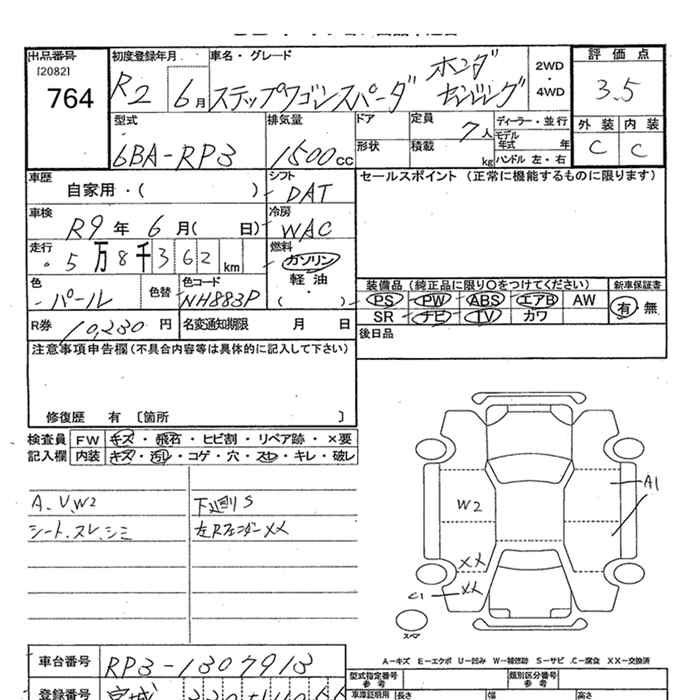 出品番号
[2082]
764
初度登録年月
R2 6月
車名・グレード
ホンダ
ステップワゴンスパーダ センシング
2WD
・
4WD
評価点
3.5
外装 内装
C C
型式
6BA-RP3
排気量
1500cc
ドア
形状
定員
7人
積載
kg
ディーラー・並行
モデル
年式 年
ハンドル 左・右
車歴
自家用・( )
シフト
DAT
セールスポイント (正常に機能するものに限ります)
車検
R9年6月( 日)
冷房
WAC
走行
5万8千362km
燃料
ガソリン
軽油
( )
色
パール
色替
色コード
NH883P
装備品 (純正品に限り○をつけてください)
PS PW ABS エアB AW
SR ナビ TV カワ
新車保証書
有・無
R券 10,230円
名変通知期限 月 日
後日品
注意事項申告欄(不具合内容等は具体的に記入して下さい)
修復歴 有 [箇所 ]
検査員 FW キズ・飛石・ヒビ割・リペア跡・×要
記入欄 内装 キズ・汚れ・コゲ・穴・スレ・キレ・破レ
A.U.W2
シート.スレ.シミ
下廻り S
左Rフェンダー XX
W2
A1
XX
XX
C1
スペア
A―キズ E―エクボ U―凹み W―補修跡 S―サビ C―腐食 XX―交換済
車台番号
RP3-1307913
型式指定番号
参考
類別区分番号
参考
登録番号
宮城
車庫証明用
長さ
幅
高さ